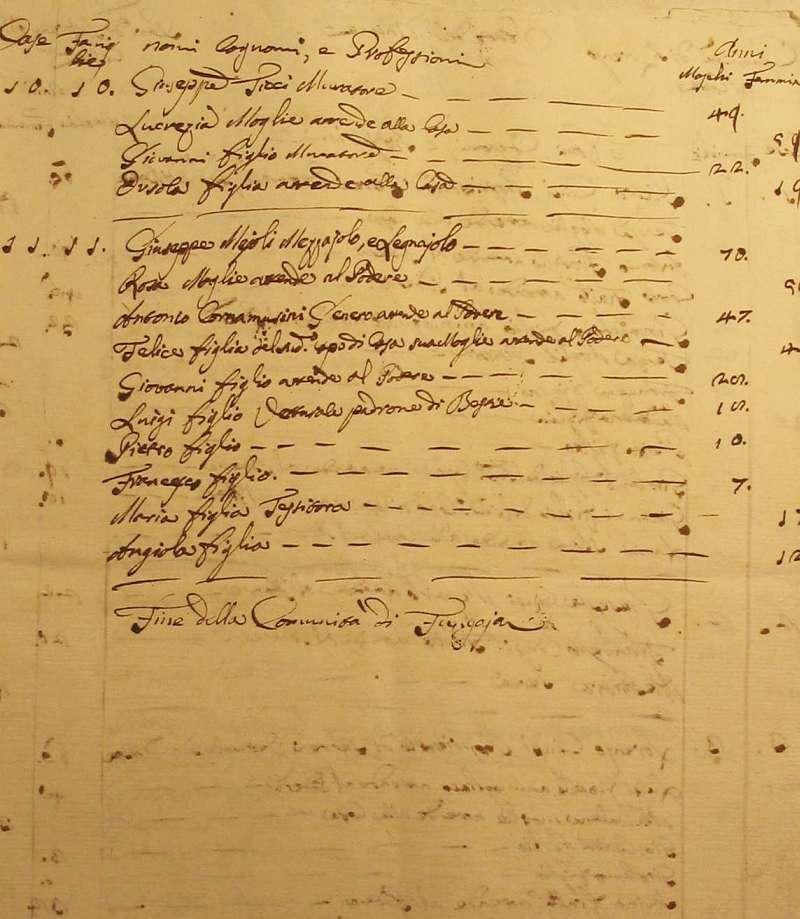 Case Famiglie nomi Cognomi, e Professioni Anni
Maschi Femmine
10. 10. Giuseppe Ticci Muratore 49.
Lucrezia Moglie attende alla Casa
Giovanni figlio Muratore 22.
Orsola figlia attende alla Casa
11. 11. Giuseppe Mejoli Mezzajolo, e Legnajolo 70.
Rosa Moglie attende al Podere
Antonio Cornamusini Genero attende al Podere 47.
Felice figlia del sud.º Capo di Casa sua Moglie attende al Podere
Giovanni figlio attende al Podere
Luigi figlio padrone di
Pietro figlio 10.
Francesco figlio. 7.
Maria figlia Tessitora
Angiola figlia 12
Fine della Comunità di Fungaja